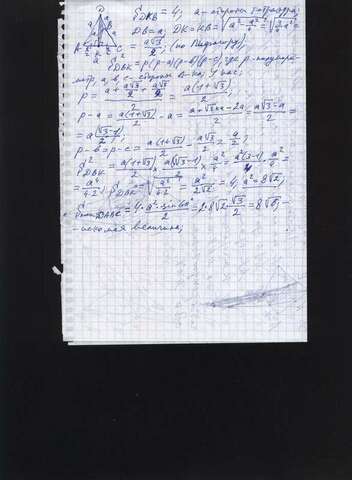 D S_DKB = 4, a - стороны тетраэдра;
DB = a; DK = KB = √(a² - a²/4) = √(3/4 a²) =
A C = a√3/2; (по Пифагору);
S²_DBK = p(p-a)(p-b)(p-c), где p - полупери-
метр, a, b, c - стороны Δ-ка; у нас;
p = (a + a√3/2 + a√3/2)/2 = a(1+√3)/2;
p - a = a(1+√3)/2 - a = (a + √3a - 2a)/2 = (a√3 - a)/2 =
= a(√3-1)/2;
p - b = p - c = a(1+√3)/2 - a√3/2 = a/2;
S²_DBK = a(1+√3)/2 × a(√3-1)/2 × a²/4 = a²(3-1)/4 · a²/4 =
= a⁴/4·2; S_DBK = √(a⁴/4·2) = a²/2√2 = 4; a² = 8√2;
S DABC = 4 · a² · sin60°/2 = 2·8√2·√3/2 = 8√6; -
- искомая величина;